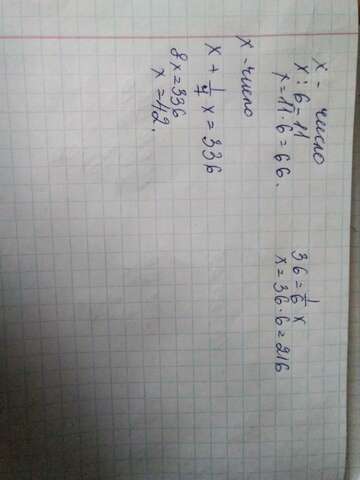 x - число
x : 6 = 11
x = 11 · 6 = 66.
x - число
x + 1/7 x = 336
8x = 336
x = 42.
36 = 1/6 x
x = 36 · 6 = 216